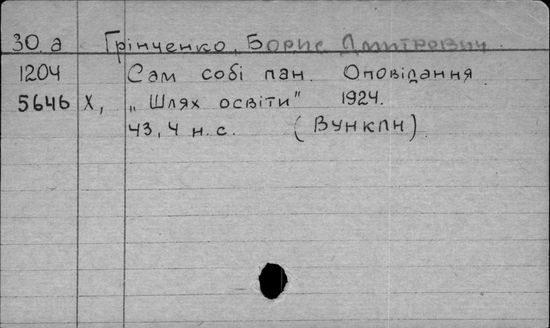 30.а Грінченко, Борис Дмитрович
1204 Сам собі пан. Оповідання
5646 Х, „Шлях освіти" 1924.
43, 4 н. с. (Вункпн)